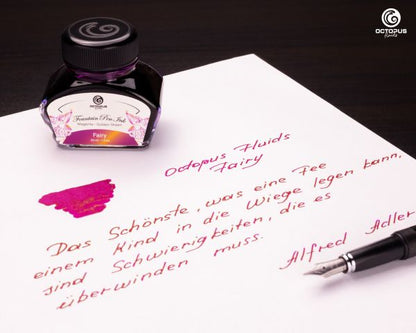 OCTOPUS
fluids
OCTOPUS
Fountain Pen Ink
Fairy
Octopus Fluids
Fairy
Das Schönste, was eine Fee
einem Kind in die Wiege legen kann,
sind Schwierigkeiten, die es
überwinden muss.
Alfred Adler